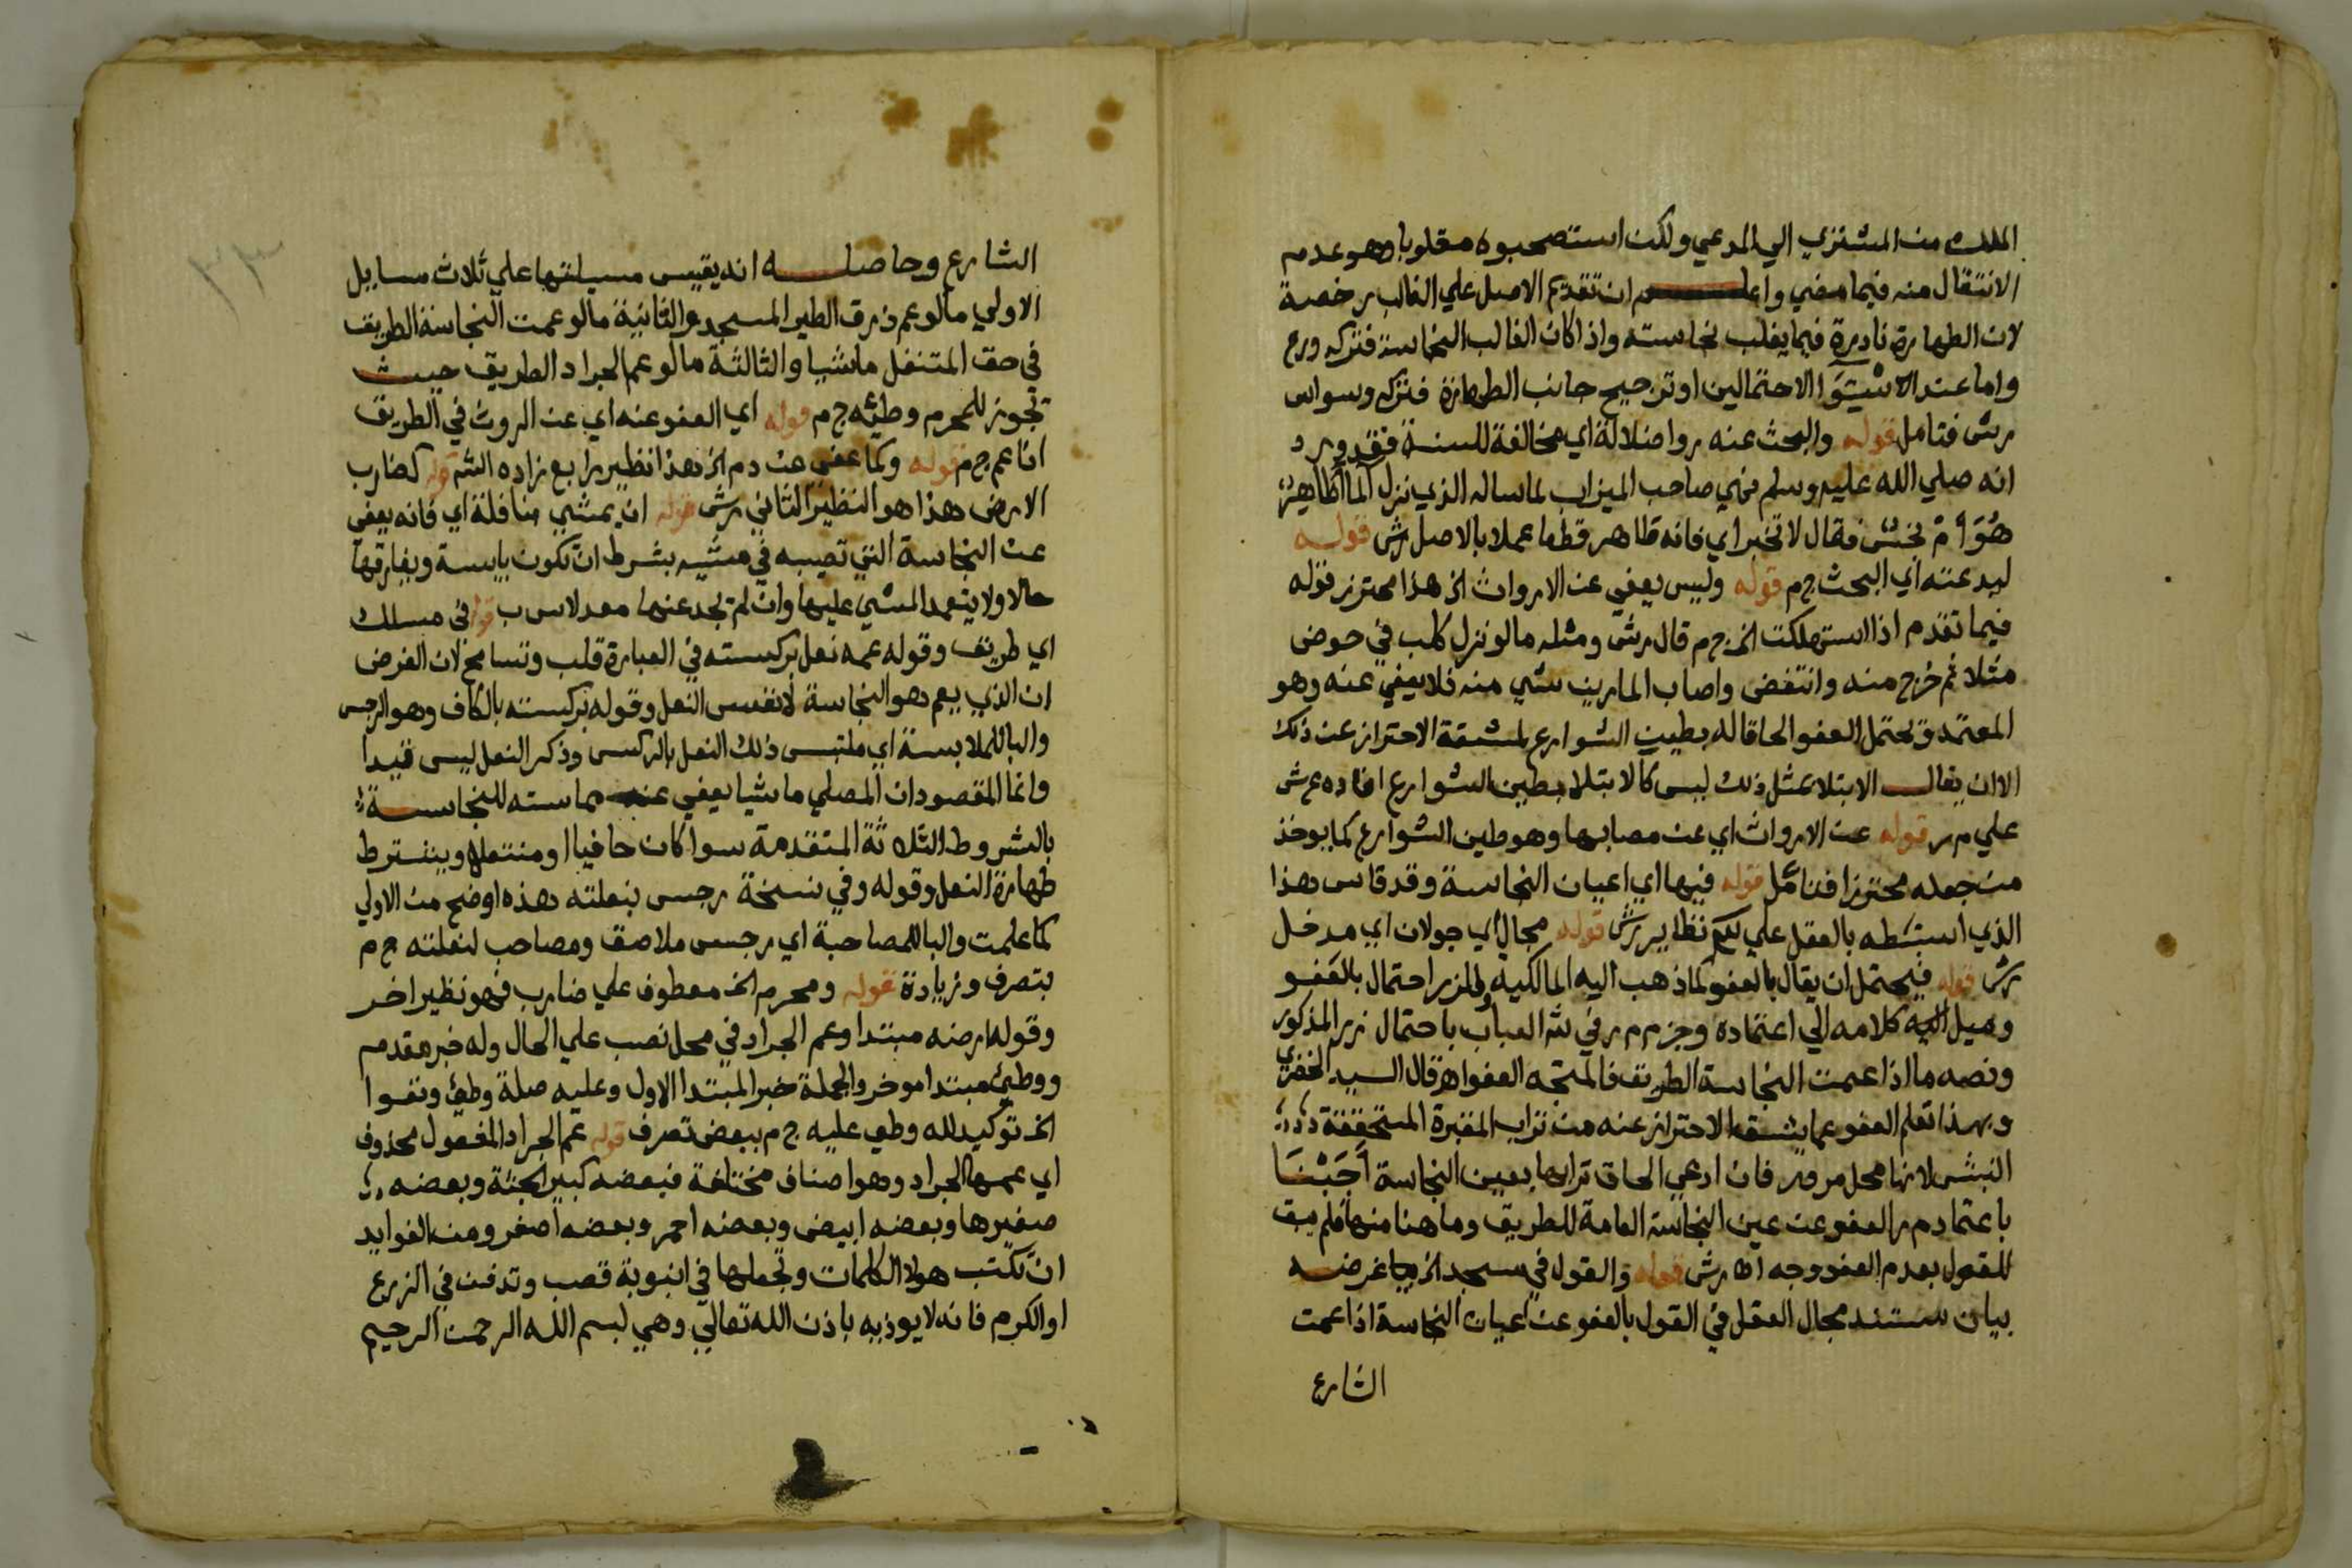 الملك من المشتري الي المدعي ولكن استصحبوه مقلوبا وهو عدم
الانتقال منه فيما مضي واعلم ان تقديم الاصل علي الغالب رخصة
لان الطهارة نادرة فيما يغلب نجاسته واذا كان الغالب النجاسة فتركه ورع
واما عند الاستوا الاحتمالين او ترجيح جانب الطهارة فتركه وسواس
رش فتامل قوله والبحث عنه روا ضلالة اي مخالفة للسنة فقد ورد
انه صلي الله عليه وسلم نهي صاحب الميزاب لما ساله الذي نزل الما اطاهر
هو ام نجس فقال لا تخبر اي فانه طاهر قطعا عملا بالاصل رش قوله
ليدعنه اي البحث ج م قوله وليس يعفي عن الارواث الخ هذا محترز قوله
فيما تقدم اذا استهلكت الخ ج م قال رش ومثله ما لو نزل كلب في حوض
مثلا ثم خرج منه وانتفض واصاب المارين شي منه فلا يعفي عنه وهو
المعتمد ويحتمل العفو الحاقا له بطين الشوارع لمشقة الاحتراز عن ذلك
الا ان يقال الابتلا بمثل ذلك ليس كالابتلا بطين الشوارع افاده ع ش
علي م ر قوله عن الارواث اي عن مصابها وهو طين الشوارع كما يوخذ
من جعله محترزا فتامل قوله فيها اي اعيان النجاسة وقد قاس هذا
الذي استنبطه بالعقل علي نظاير رش قوله مجال اي جولان اي مدخل
رش قوله فيحتمل ان يقال بالعفو كما ذهب اليه المالكيه وللزر احتمال بالعفو
وميل كلامه الي اعتماده وجزم م ر في شر العباب باحتمال زر المذكور
ونصه ما اذا عمت النجاسة الطريق فالمتجه العفو اه قال السيد الحفري
وبهذا تعلم العفو عما يشق الاحتراز عنه من تراب المقبرة المتحققة
النبش لانها محل مرور فان ادعي الحاق ترابها بعين النجاسة اجبنا
باعتماد م ر العفو عن عين النجاسة العامة للطريق وما هنا منها فلم يبق
للقول بعدم العفو وجه اه رش قوله والقول في مسجد الخ غرضه
بيان مستند مجال العقل في القول بالعفو عن اعيان النجاسة اذا عمت
الشارع
الشارع وحاصله انه يقيس مسيلتها علي ثلاث مسايل
الاولي ما لو عم ذرق الطير المسجد والثانية ما لو عمت النجاسة الطريق
في حق المتنفل ماشيا والثالثة ما لو عم الجراد الطريق حيث
تجوز للمحرم وطيه ج م قوله اي العفو عنه اي عن الروث في الطريق
ان عم ج م قوله وكما عفي عن دم الخ هذا نظير رابع زاده الش قوله كضارب
الارض هذا هو النظير الثاني رش قوله ان يمشي منافلة اي فانه يعفي
عن النجاسة التي تصيبه في مشيه بشرط ان تكون يابسة ويفارقها
حالا ولا يتعمد المشي عليها وان لم تجد عنها معدلا س ب قوله في مسلك
اي طريق وقوله عمه نعل بركسته في العبارة قلب وتسامح لان الغرض
ان الذي يعم هو النجاسة لا نفس النعل وقوله بركسته بالكاف وهو الرجس
والبا للملابسة اي ملتبس ذلك النعل بالركس وذكر النعل ليس قيدا
وانما المقصود ان المصلي ماشيا يعفي عنه مماسته للنجاسة
بالشروط الثلاثة المتقدمة سوا كان حافيا او منتعلا ويشترط
طهارة النعل وقوله وفي نسخة رجس بنعلته هذه اوضح من الاولي
كما علمت والبا للمصاحبة اي رجس ملاصق ومصاحب لنعلته ج م
بتصرف وزيادة قوله ومحرم الخ معطوف علي ضارب فهو نظير اخر
وقوله ارضه مبتدا وعم الجراد في محل نصب علي الحال وله خبر مقدم
ووطئ مبتدا موخر والجملة خبر المبتدا الاول وعليه صلة وطئ وتقوا
الخ توكيد لله وطي عليه ج م ببعض تصرف قوله عم الجراد المفعول محذوف
اي عمها الجراد وهو اصناف مختلفة فبعضه كبير الجثة وبعضه
صغيرها وبعضه ابيض وبعضه احمر وبعضه اصفر ومن الفوايد
ان تكتب هولا الكلمات وتجعلها في انبوبة قصب وتدفن في الزرع
او الكرم فانه لا يوذيه باذن الله تعالي وهي لبسم الله الرحمن الرحيم